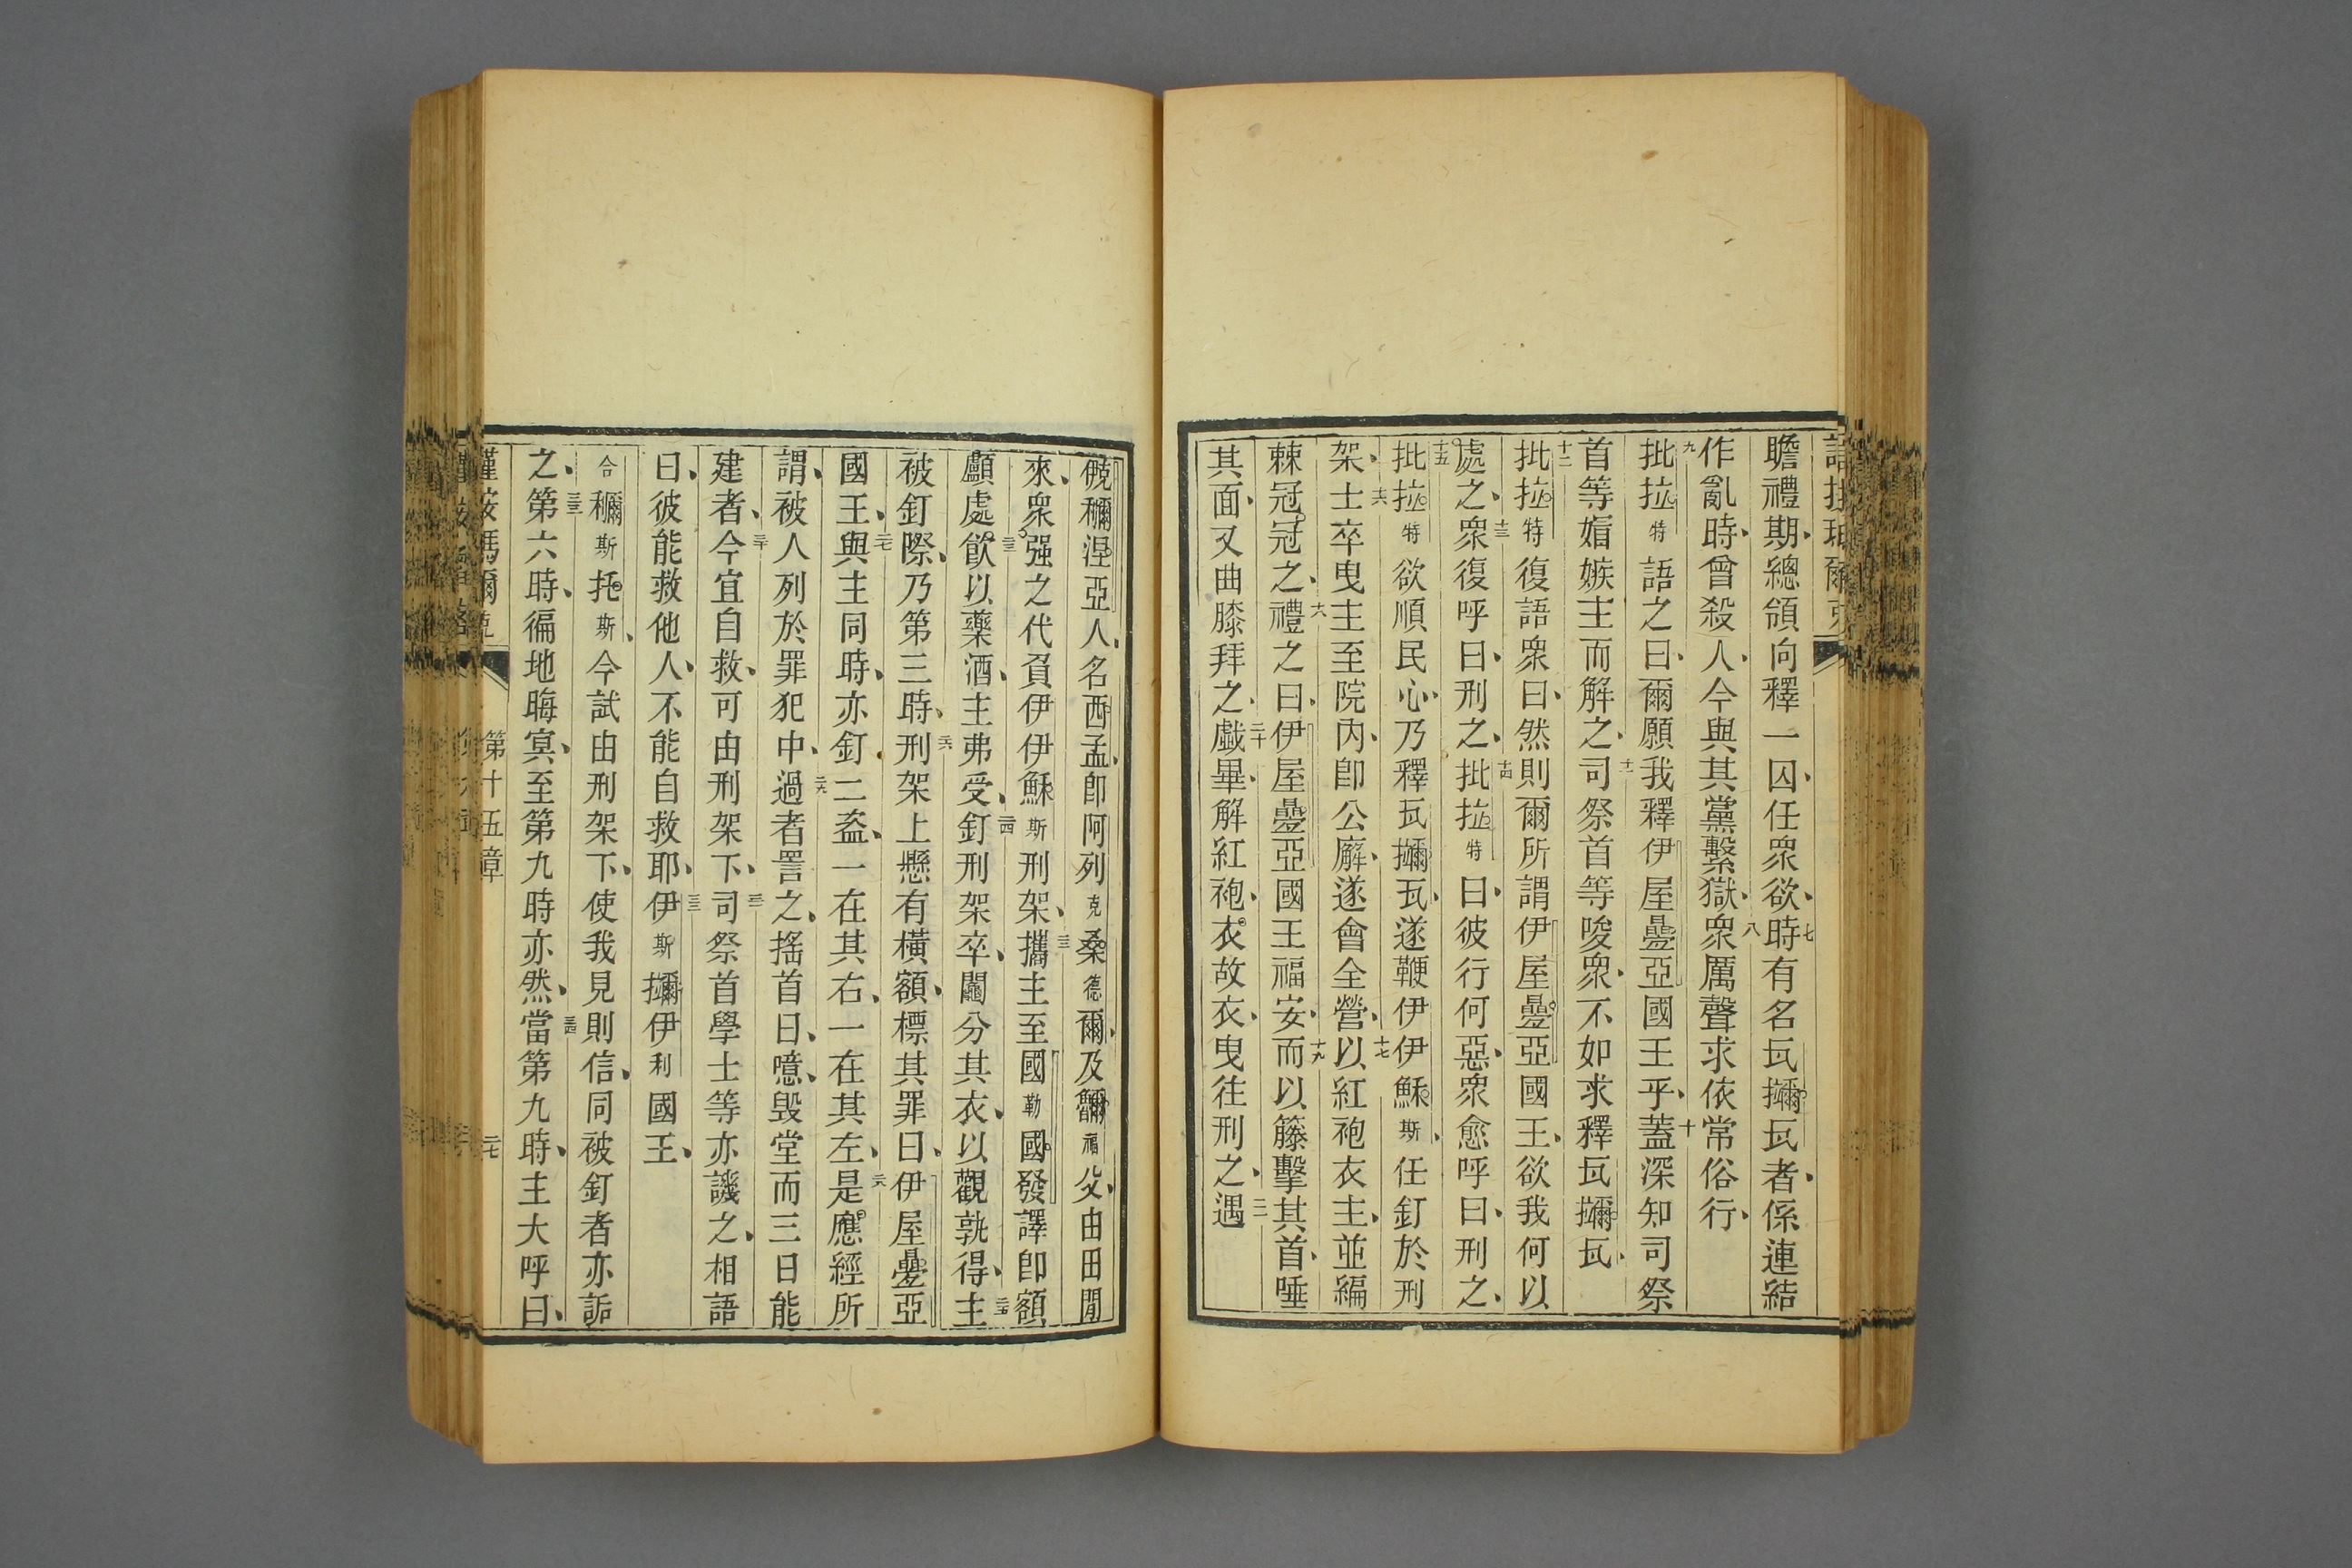 瞻禮期、總領向釋一囚、任眾欲、七時有名瓦𭡝瓦者、係連結
作亂時、曾殺人、今與其黨繫獄、八眾厲聲求依常俗行、
九批拉特語之曰、爾願我釋伊屋疊亞國王乎、十蓋深知司祭
首等媢嫉主而解之、十一司祭首等唆眾、不如求釋瓦𭡝瓦、
十二批拉特復語眾曰、然則爾所謂伊屋疊亞國王、欲我何以
處之、十三眾復呼曰、刑之、十四批拉特曰、彼行何惡、眾愈呼曰、刑之、
十五批拉特欲順民心、乃釋瓦𭡝瓦、遂鞭伊伊穌斯、任釘於刑
架、十六士卒曳主至院內、卽公廨、遂會全營、十七以紅袍衣主、並編
棘冠冠之、十八禮之曰、伊屋疊亞國王福安、十九而以籐擊其首、唾
其面、又曲膝拜之、二十戲畢、解紅袍、衣故衣、曳往刑之、二一遇
涅亞人、名西孟、卽阿列克桑德爾、及福父、由田間
來、眾强之代負伊伊穌斯刑架、二二攜主至國勒國發、譯卽額
顱處、二三飲以藥酒、主弗受、二四釘刑架卒、鬮分其衣、以觀孰得、二五主
被釘際、乃第三時、二六刑架上懸有橫額、標其罪曰、伊屋疊亞
國王、二七與主同時、亦釘二盜、一在其右、一在其左、二八是應經所
謂、被人列於罪犯中、二九過者詈之、搖首曰、噫、毀堂而三日能
建者、三十今宜自救、可由刑架下、三一司祭首學士等亦譏之、相語
曰、彼能救他人、不能自救耶、三二伊斯伊利國王、
合斯托斯、今試由刑架下、使我見則信、同被釘者亦詬
之、三三第六時、徧地晦冥、至第九時亦然、三四當第九時、主大呼曰、
第十五章 二七